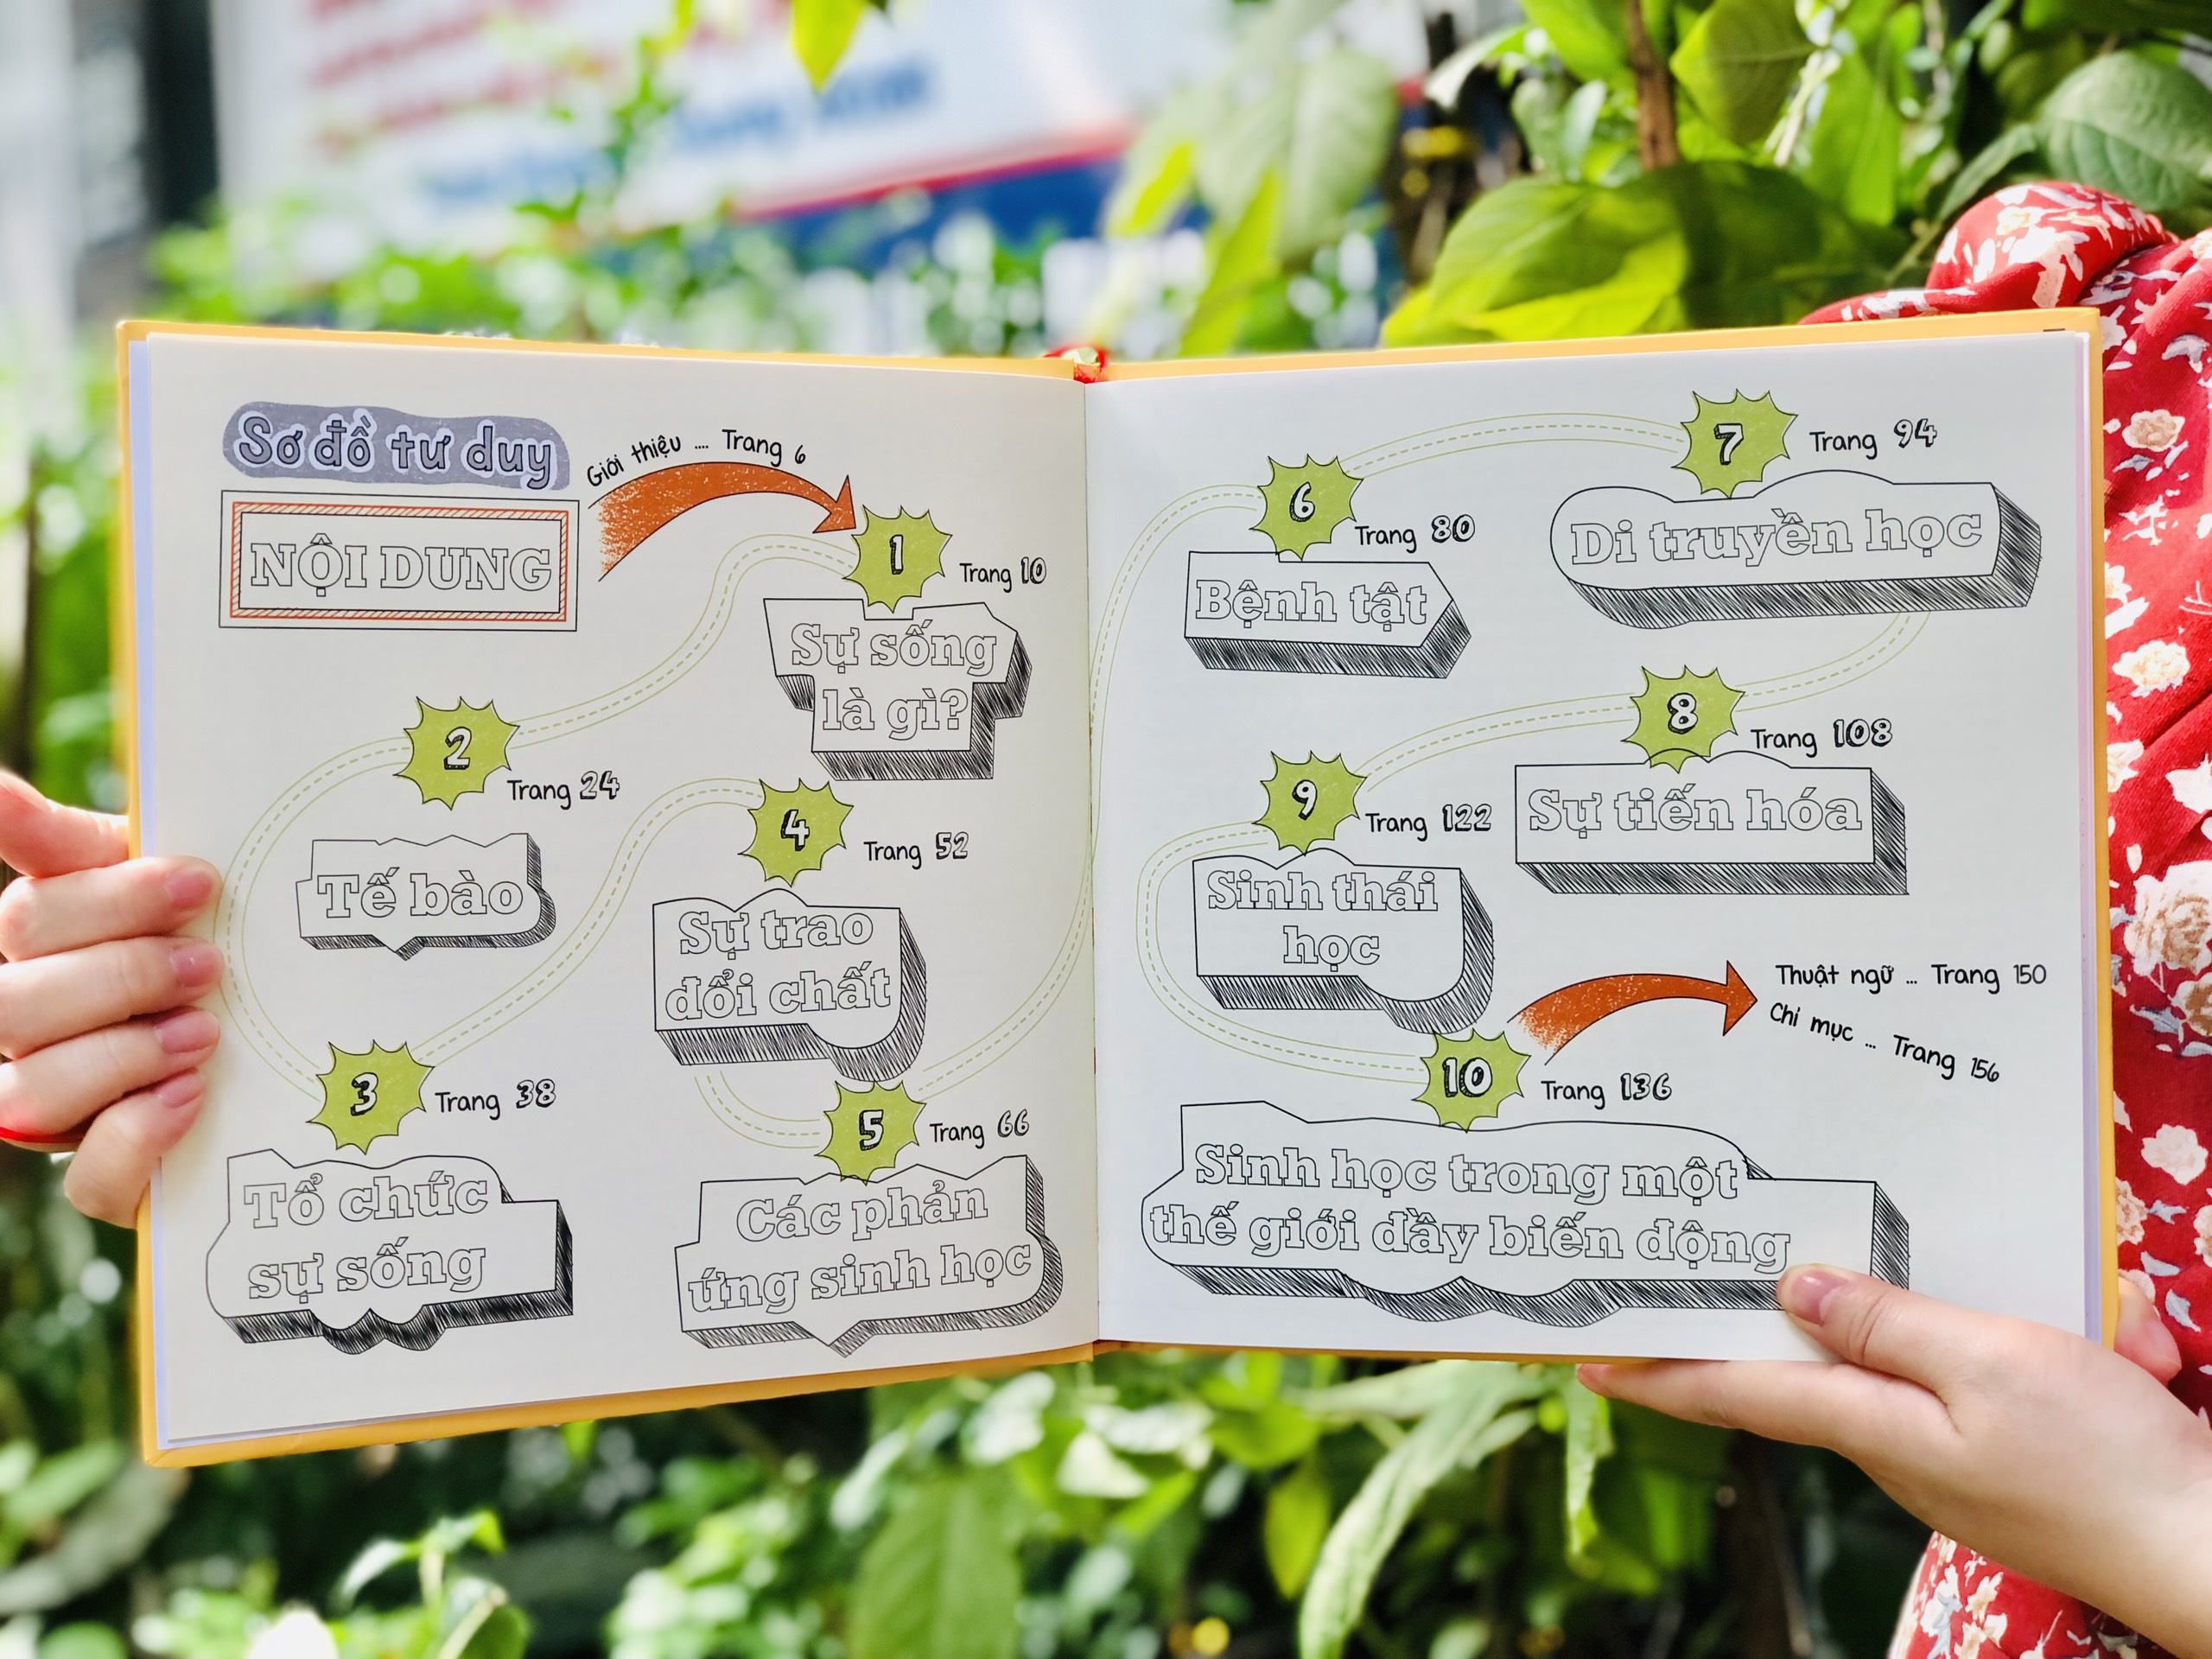 Sơ đồ tư duy
NỘI DUNG
Giới thiệu .... Trang 6
1
Trang 10
Sự sống
là gì?
2
Trang 24
Tế bào
3
Trang 38
Tổ chức
sự sống
4
Trang 52
Sự trao
đổi chất
5
Trang 66
Các phản
ứng sinh học
6
Trang 80
Bệnh tật
7
Trang 94
Di truyền học
8
Trang 108
Sự tiến hóa
9
Trang 122
Sinh thái
học
10
Trang 136
Sinh học trong một
thế giới đầy biến động
Thuật ngữ ... Trang 150
Chỉ mục ... Trang 156